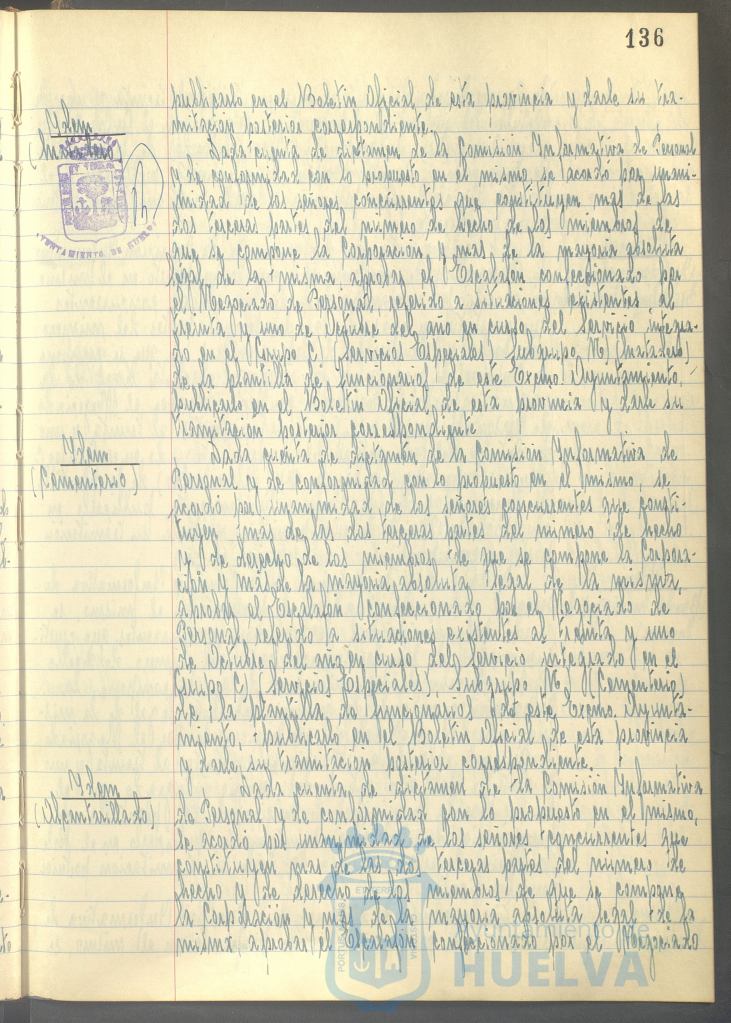 136
publicarlo en el Boletin Oficial de esta provincia y darle su tra-
mitacion posterior correspondiente.
Idem
(Matadero)
AYUNTAMIENTO DE HUELVA
Dada cuenta de dictamen de la Comision Informativa de Personal
y de conformidad con lo propuesto en el mismo se acordó por unani-
midad de los señores concurrentes que constituyen mas de las
dos terceras partes del numero de hecho de los miembros de
que se compone la Corporacion y mas de la mayoria absoluta
legal de la misma aprobar el Escalafon confeccionado por
el Negociado de Personal, referido a situaciones existentes al
treinta y uno de Octubre del año en curso del Servicio integra-
do en el Grupo C) (Servicios Especiales) Subgrupo (Matadero)
de la plantilla de funcionarios de este Excmo. Ayuntamiento,
publicarlo en el Boletin Oficial de esta provincia y darle su
tramitacion posterior correspondiente
Idem
(Cementerio)
Dada cuenta de dictamen de la Comision Informativa de
Personal y de conformidad con lo propuesto en el mismo, se
acordó por unanimidad de los señores concurrentes que consti-
tuyen mas de las dos terceras partes del numero de hecho
y de derecho de los miembros de que se compone la Corpora-
ción y más de la mayoria absoluta legal de la misma,
aprobar el Escalafon confeccionado por el Negociado de
Personal referido a situaciones existentes al treinta y uno
de Octubre del año en curso del Servicio integrado en el
Grupo C) (Servicios Especiales), Subgrupo (Cementerio)
de la plantilla de funcionarios de este Excmo. Ayunta-
miento, publicarlo en el Boletin Oficial de esta provincia
y darle su tramitación posterior correspondiente.
Idem
(Alcantarillado)
Dada cuenta de dictamen de la Comisión Informativa
de Personal y de conformidad con lo propuesto en el mismo,
se acordó por unanimidad de los señores concurrentes que
constituyen mas de las dos terceras partes del numero de
hecho y de derecho de los miembros de que se compone
la Corporacion y más de la mayoria absoluta legal de la
misma, aprobar el Escalafon confeccionado por el Negociado
Ayuntamiento de
HUELVA